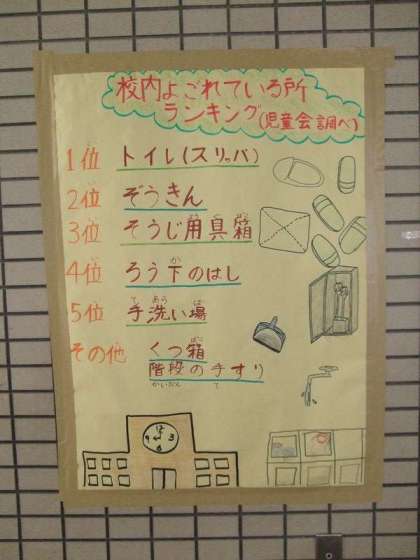 校内よごれている所
ランキング(児童会調べ)
1位 トイレ(スリッパ)
2位 ぞうきん
3位 そうじ用具箱
4位 ろう下のはし
5位 手洗い場
その他 くつ箱
階段の手すり